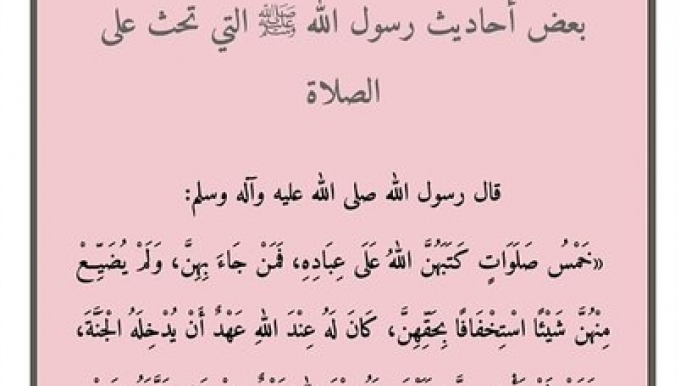 بعض أحاديث رسول الله ﷺ التي تحث على
الصلاة
قال رسول الله صلى الله عليه وآله وسلم:
«خَمْسُ صَلَوَاتٍ كَتَبَهُنَّ اللهُ عَلَى عِبَادِهِ، فَمَنْ جَاءَ بِهِنَّ، وَلَمْ يُضَيِّعْ
مِنْهُنَّ شَيْئًا اسْتِخْفَافًا بِحَقِّهِنَّ، كَانَ لَهُ عِنْدَ اللهِ عَهْدٌ أَنْ يُدْخِلَهُ الْجَنَّةَ،